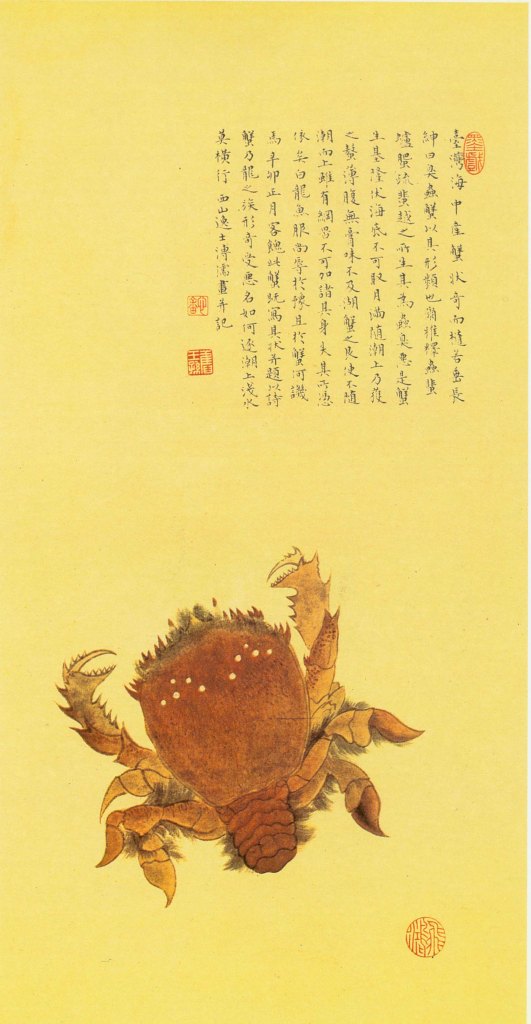 臺灣海中產蟹狀奇而瓏若魚長
紳曰臭蟲蟹以其形類也翁推繹蟲蜚
蠦蜰流蜚越之所生其為蟲臭惡是蟹
生基隆伏海底不可取月滿隨潮上乃獲
之螯薄腹無膏味不及湖蟹之良使不隨
潮而上雖有綱罟不可加諸其身失其所憑
依矣白龍魚服尚辱於豫且於蟹何譏
焉辛卯正月客魏此蟹既寫其狀并題以詩
蟹乃龍之族形奇受惡名如何逐潮上淺水
莫橫行 西山逸士溥濡畫并記